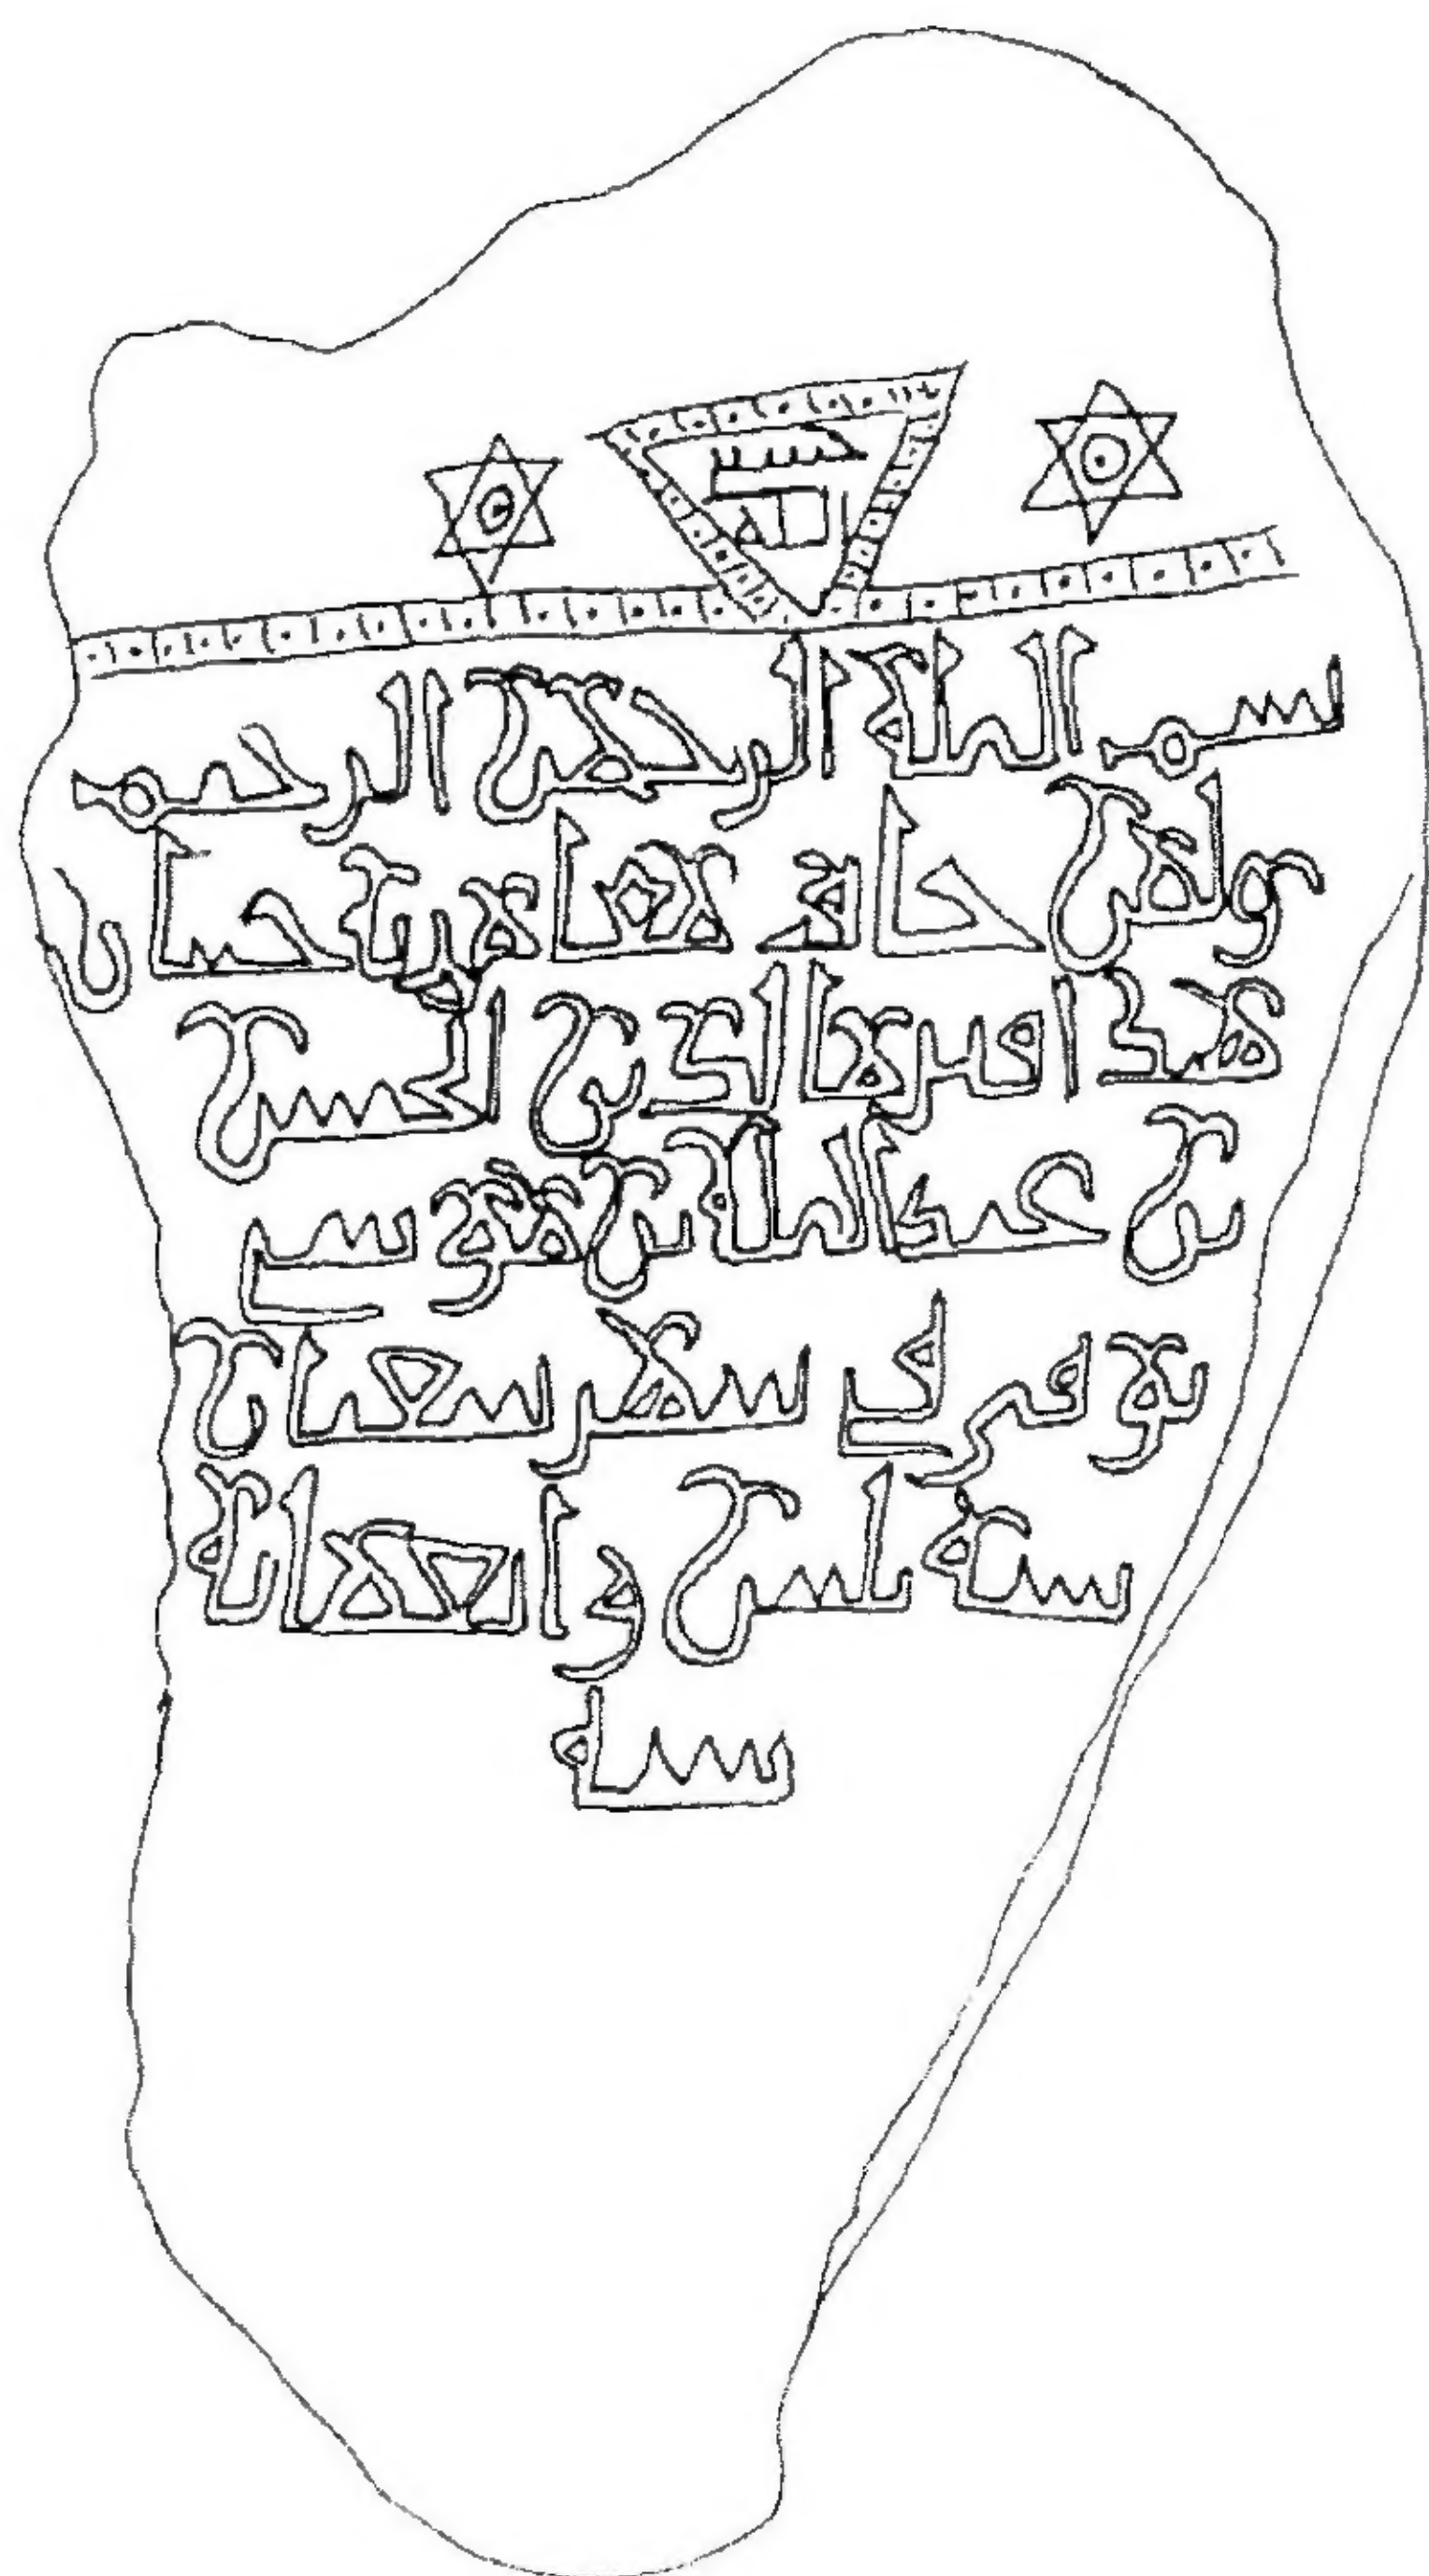 حسبي
الله
بسم الله الرحمن الرحيم
ولمن خاف مقام ربه جنتان
هذا قبر بن الحسن
بن عبد الله بن موسى
توفي في شهر شعبان
سنة ثلثين واربعمائة
سنة